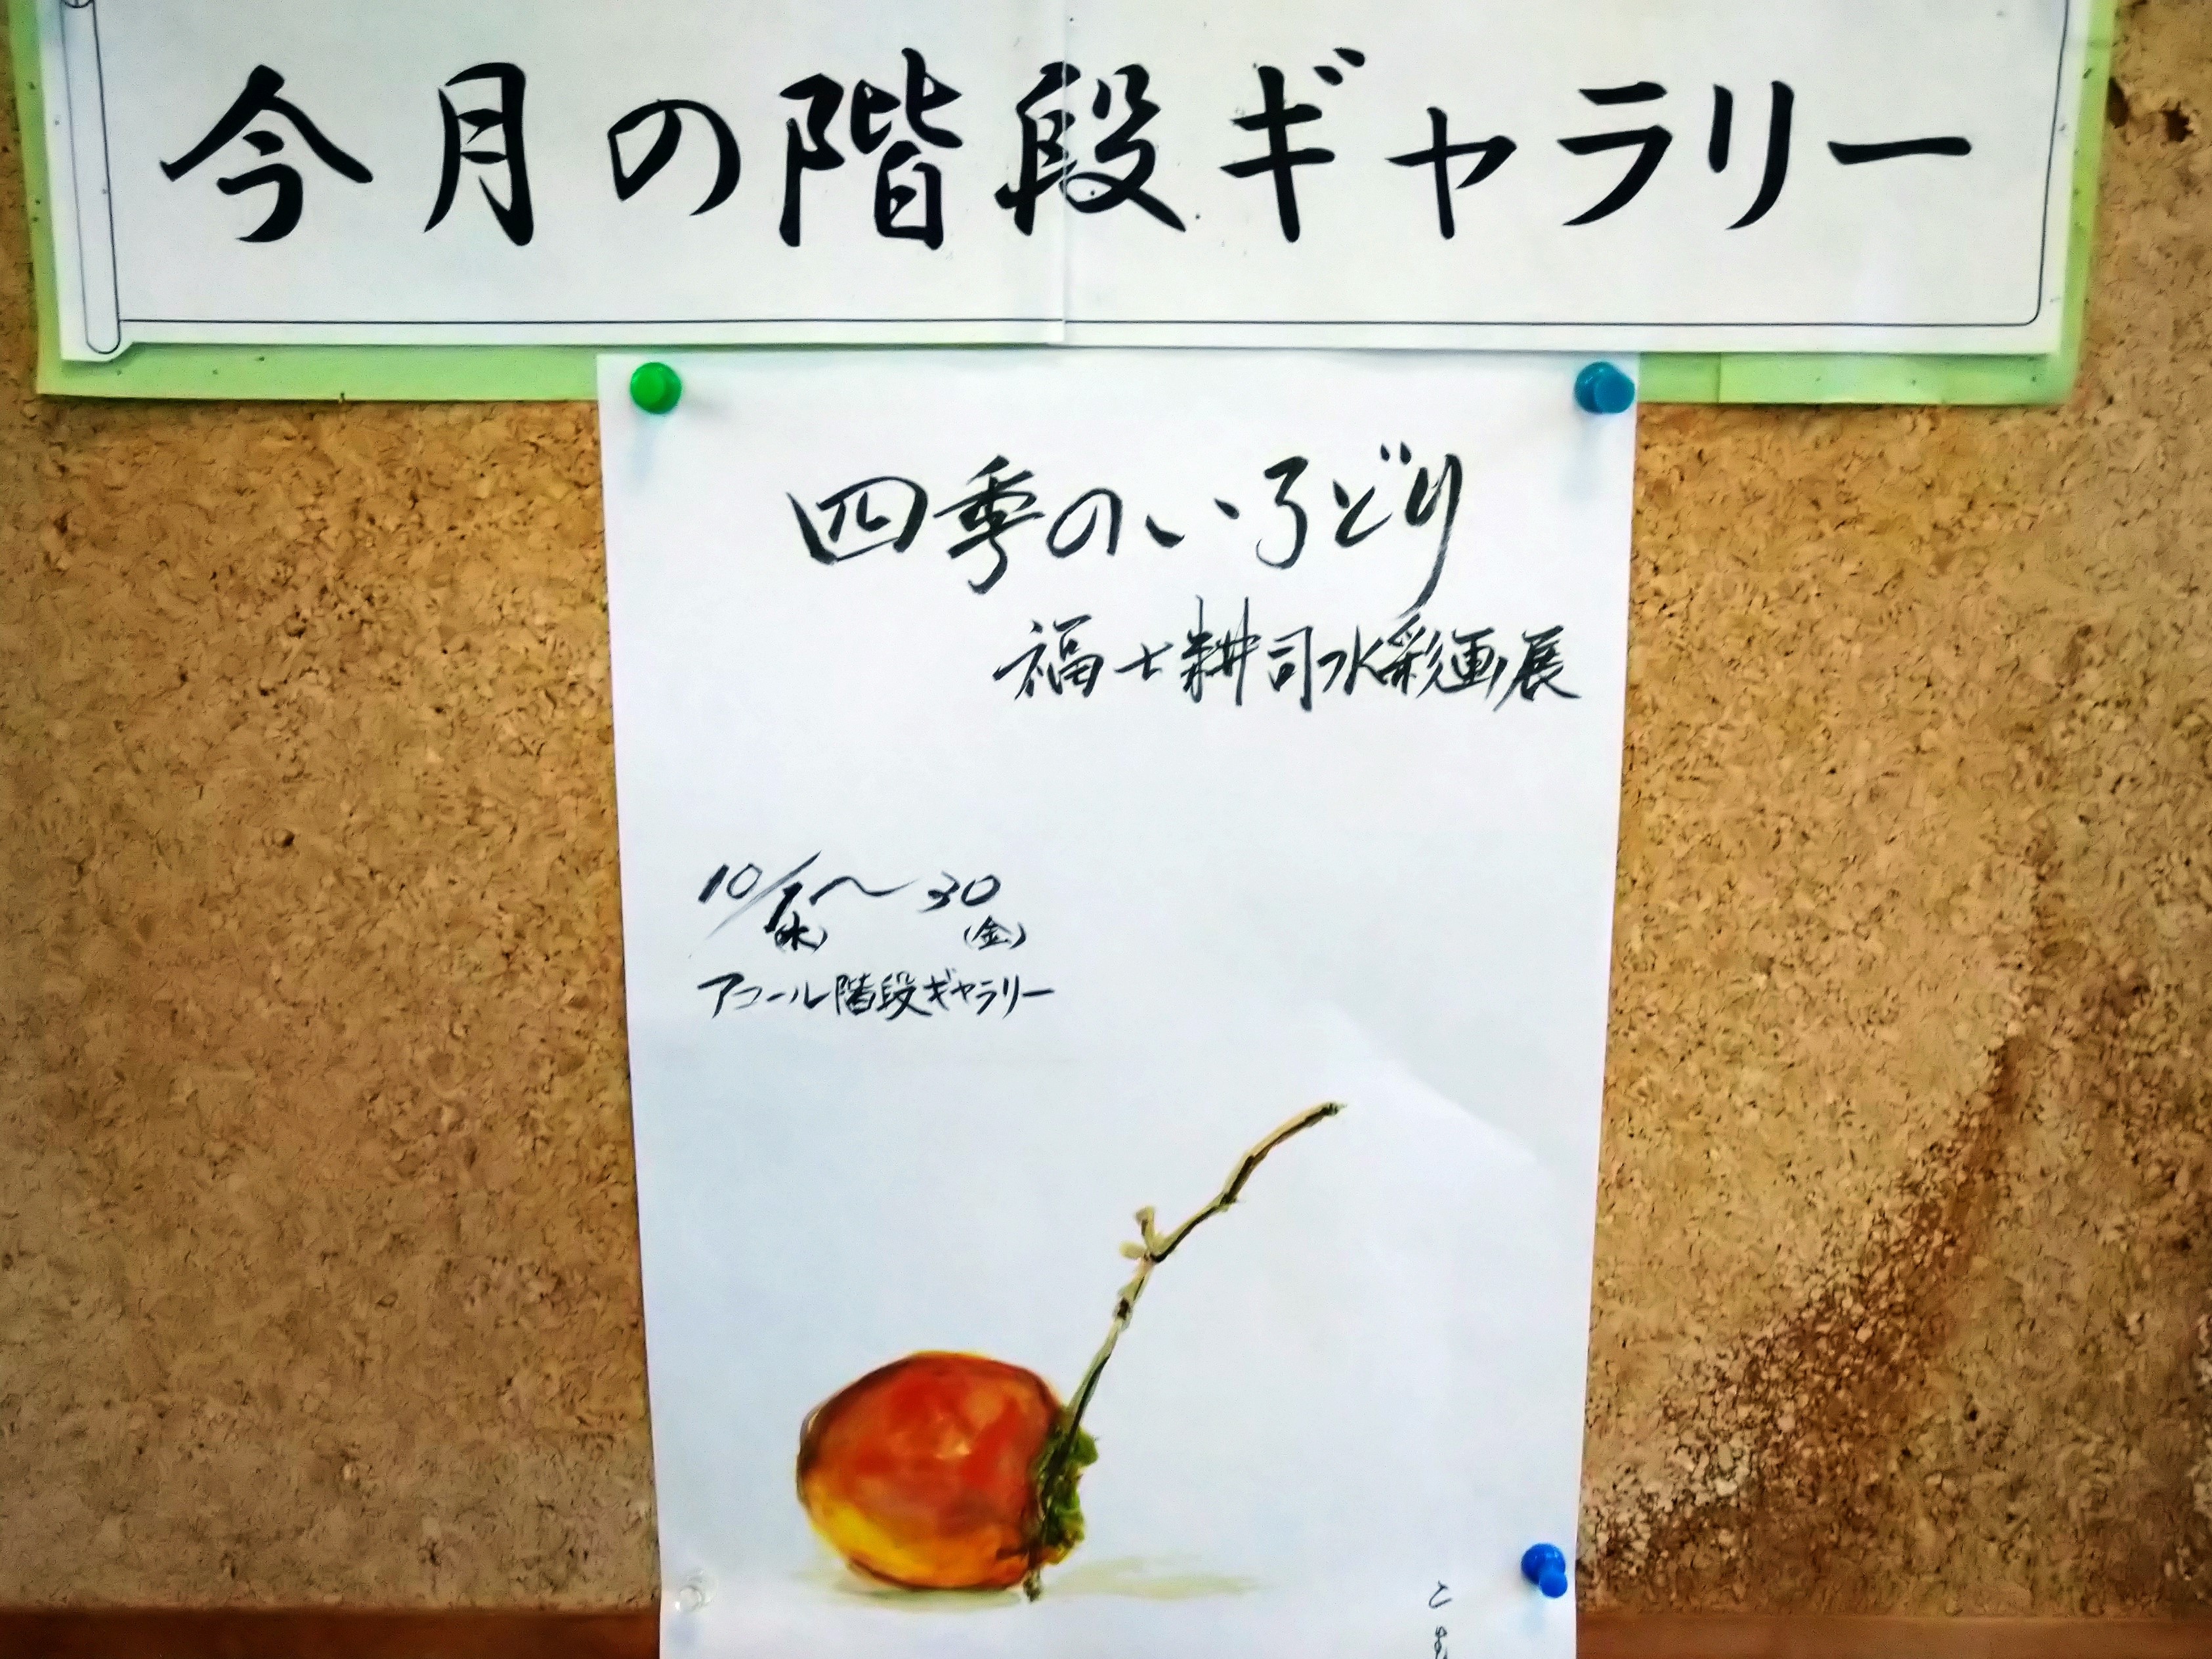 今月の階段ギャラリー
四季のいろどり
福士耕司水彩画展
10/1~30
(水) (金)
アコール階段ギャラリー